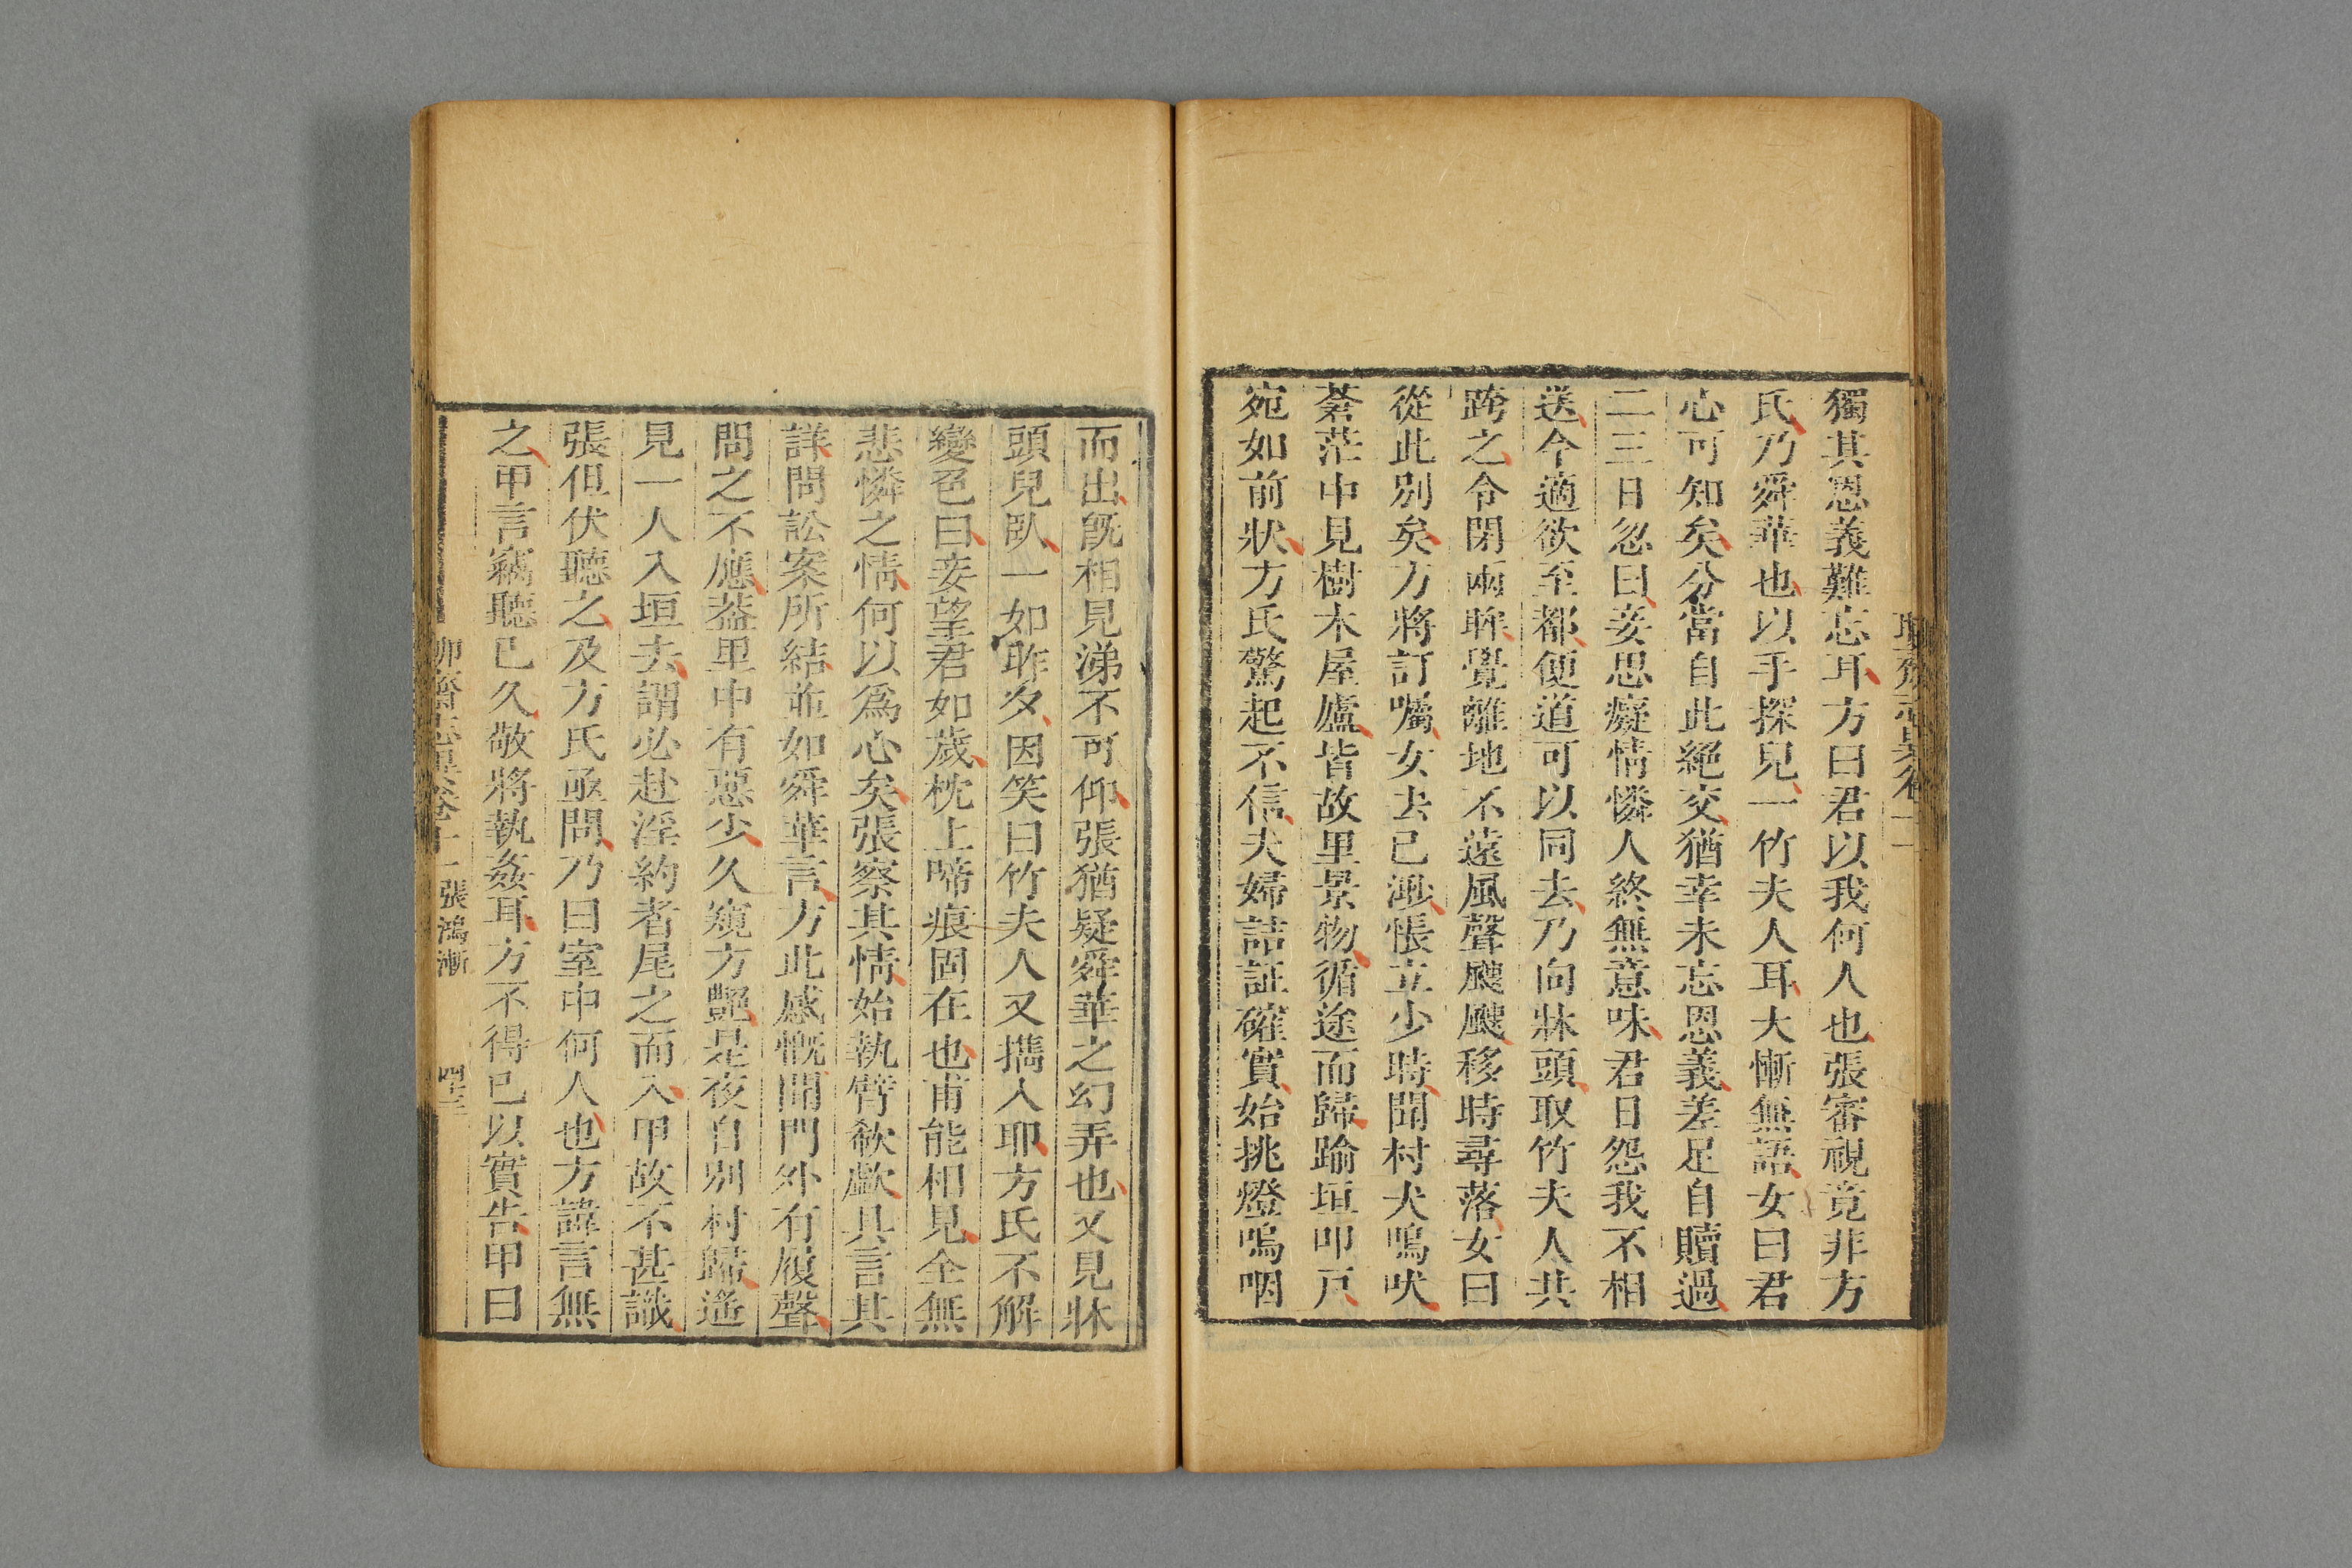 獨其恩義難忘耳方曰君以我何人也張審視竟非方
氏乃舜華也以手探兒一竹夫人耳大慚無語女曰君
心可知矣分當自此絕交猶幸未忘恩義差足自贖過
二三日忽曰妾思癡情憐人終無意味君日怨我不相
送今適欲至都便道可以同去乃向牀頭取竹夫人共
跨之令閉兩眸覺離地不遠風聲颼颼移時尋落女曰
從此別矣方將訂囑女去已渺悵立少時聞村犬鳴吠
蒼茫中見樹木屋廬皆故里景物循途而歸踰垣叩戸
宛如前狀方氏驚起不信夫婦詰証確實始挑燈嗚咽
而出既相見涕不可仰張猶疑舜華之幻弄也又見牀
頭兒臥一如昨夕因笑曰竹夫人又攜入耶方氏不解
變色曰妾望君如歲枕上啼痕固在也甫能相見全無
悲憐之情何以爲心矣張察其情始執臂欷歔具言其
詳問訟案所結並如舜華言方此感慨聞門外有履聲
問之不應葢里中有惡少久窺方艷是夜自別村歸遙
見一人入垣去謂必赴淫約者尾之而入甲故不甚識
張但伏聽之及方氏亟問乃曰室中何人也方諱言無
之甲言竊聽已久敬將執姦耳方不得已以實告甲曰
聊齋志異卷十一 張鴻漸 四十三